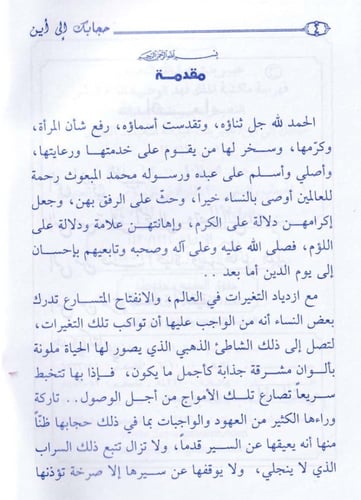 حجابك إلى أين
٤
بسم الله الرحمن الرحيم
مقدمة
الحمد لله جل ثناؤه، وتقدست أسماؤه، رفع شأن المرأة،
وكرّمها، وسخر لها من يقوم على خدمتها ورعايتها،
وأصلي وأسلم على عبده ورسوله محمد المبعوث رحمة
للعالمين أوصى بالنساء خيراً، وحثّ على الرفق بهن، وجعل
إكرامهن دلالة على الكرم، وإهانتهن علامة ودلالة على
اللؤم، فصلى الله عليه وعلى آله وصحبه وتابعيهم بإحسان
إلى يوم الدين أما بعد ..
مع ازدياد التغيرات في العالم، والانفتاح المتسارع تدرك
بعض النساء أنه من الواجب عليها أن تواكب تلك التغيرات،
لتصل إلى ذلك الشاطئ الذهبي الذي يصور لها الحياة ملونة
بألوان مشرقة جذابة كأجمل ما يكون، فإذا بها تتخبط
سريعاً تصارع تلك الأمواج من أجل الوصول.. تاركة
وراءها الكثير من العهود والواجبات بما في ذلك حجابها ظنّاً
منها أنه يعيقها عن السير قدماً، ولا تزال تتبع ذلك السراب
الذي لا ينجلي، ولا يوقفها عن سيرها إلا صرخة تؤذنها